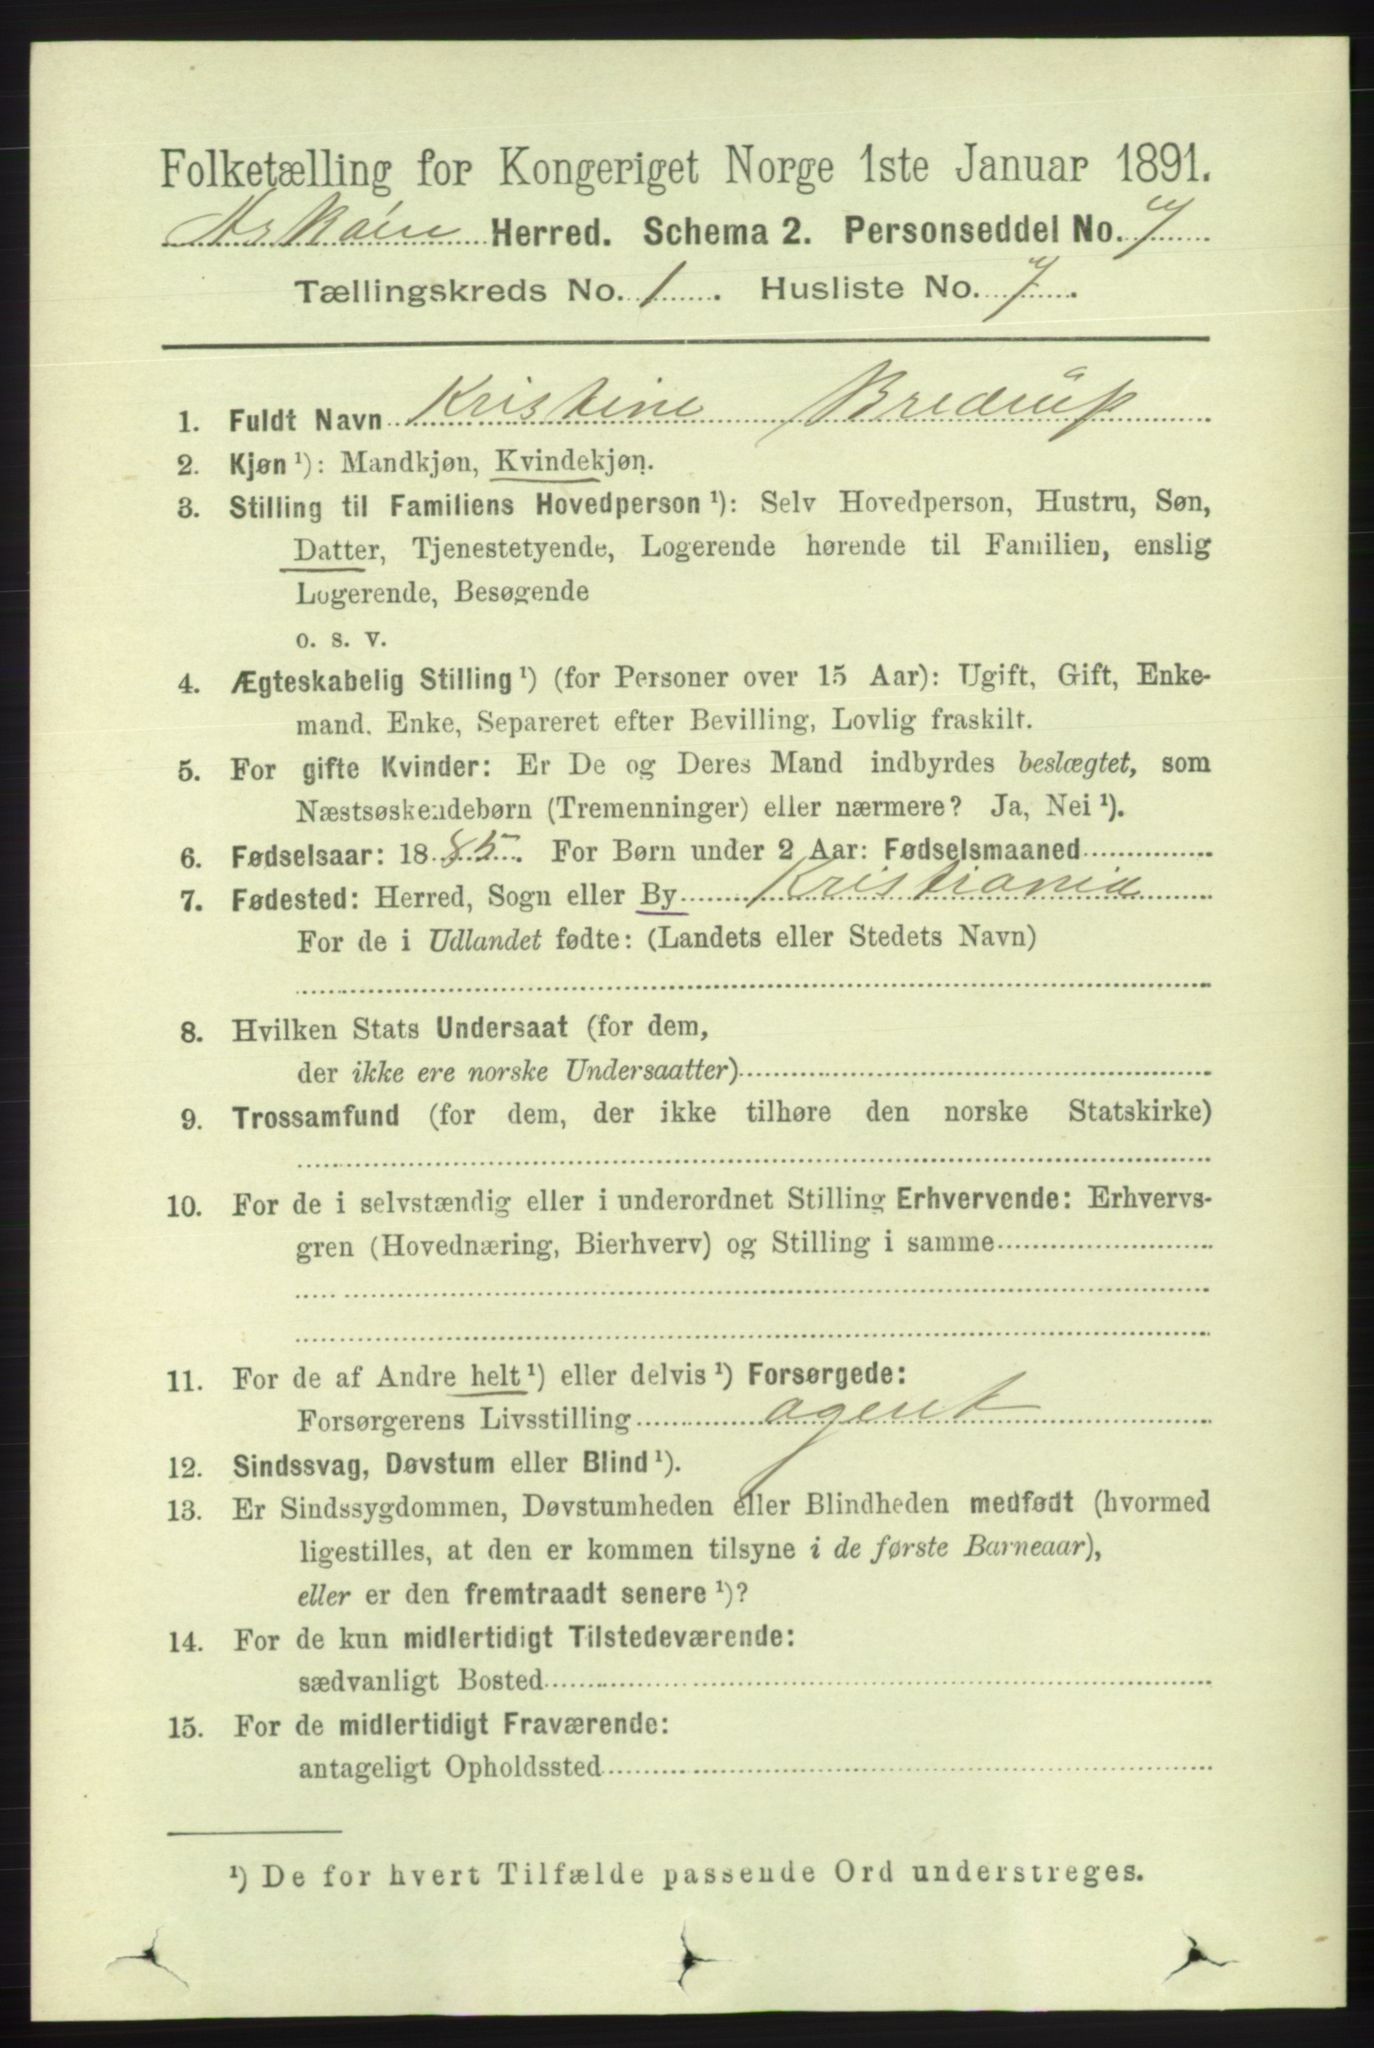 Folketælling for Kongeriget Norge 1ste Januar 1891.
Herred. Schema 2. Personseddel No. 7
Tællingskreds No. 1. Husliste No. 7.
1. Fuldt Navn Kristine Bredrup
2. Kjøn ¹): Mandkjøn, Kvindekjøn.
3. Stilling til Familiens Hovedperson ¹): Selv Hovedperson, Hustru, Søn,
Datter, Tjenestetyende, Logerende hørende til Familien, enslig
Logerende, Besøgende
o. s. v.
4. Ægteskabelig Stilling ¹) (for Personer over 15 Aar): Ugift, Gift, Enke-
mand, Enke, Separeret efter Bevilling, Lovlig fraskilt.
5. For gifte Kvinder: Er De og Deres Mand indbyrdes beslægtet, som
Næstsøskendebørn (Tremenninger) eller nærmere? Ja, Nei ¹).
6. Fødselsaar: 1885. For Børn under 2 Aar: Fødselsmaaned
7. Fødested: Herred, Sogn eller By Kristiania
For de i Udlandet fødte: (Landets eller Stedets Navn)
8. Hvilken Stats Undersaat (for dem,
der ikke ere norske Undersaatter)
9. Trossamfund (for dem, der ikke tilhøre den norske Statskirke)
10. For de i selvstændig eller i underordnet Stilling Erhvervende: Erhvervs-
gren (Hovednæring, Bierhverv) og Stilling i samme
11. For de af Andre helt ¹) eller delvis ¹) Forsørgede:
Forsørgerens Livsstilling agent
12. Sindssvag, Døvstum eller Blind ¹).
13. Er Sindssygdommen, Døvstumheden eller Blindheden medfødt (hvormed
ligestilles, at den er kommen tilsyne i de første Barneaar),
eller er den fremtraadt senere ¹)?
14. For de kun midlertidigt Tilstedeværende:
sædvanligt Bosted
15. For de midlertidigt Fraværende:
antageligt Opholdssted
¹) De for hvert Tilfælde passende Ord understreges.